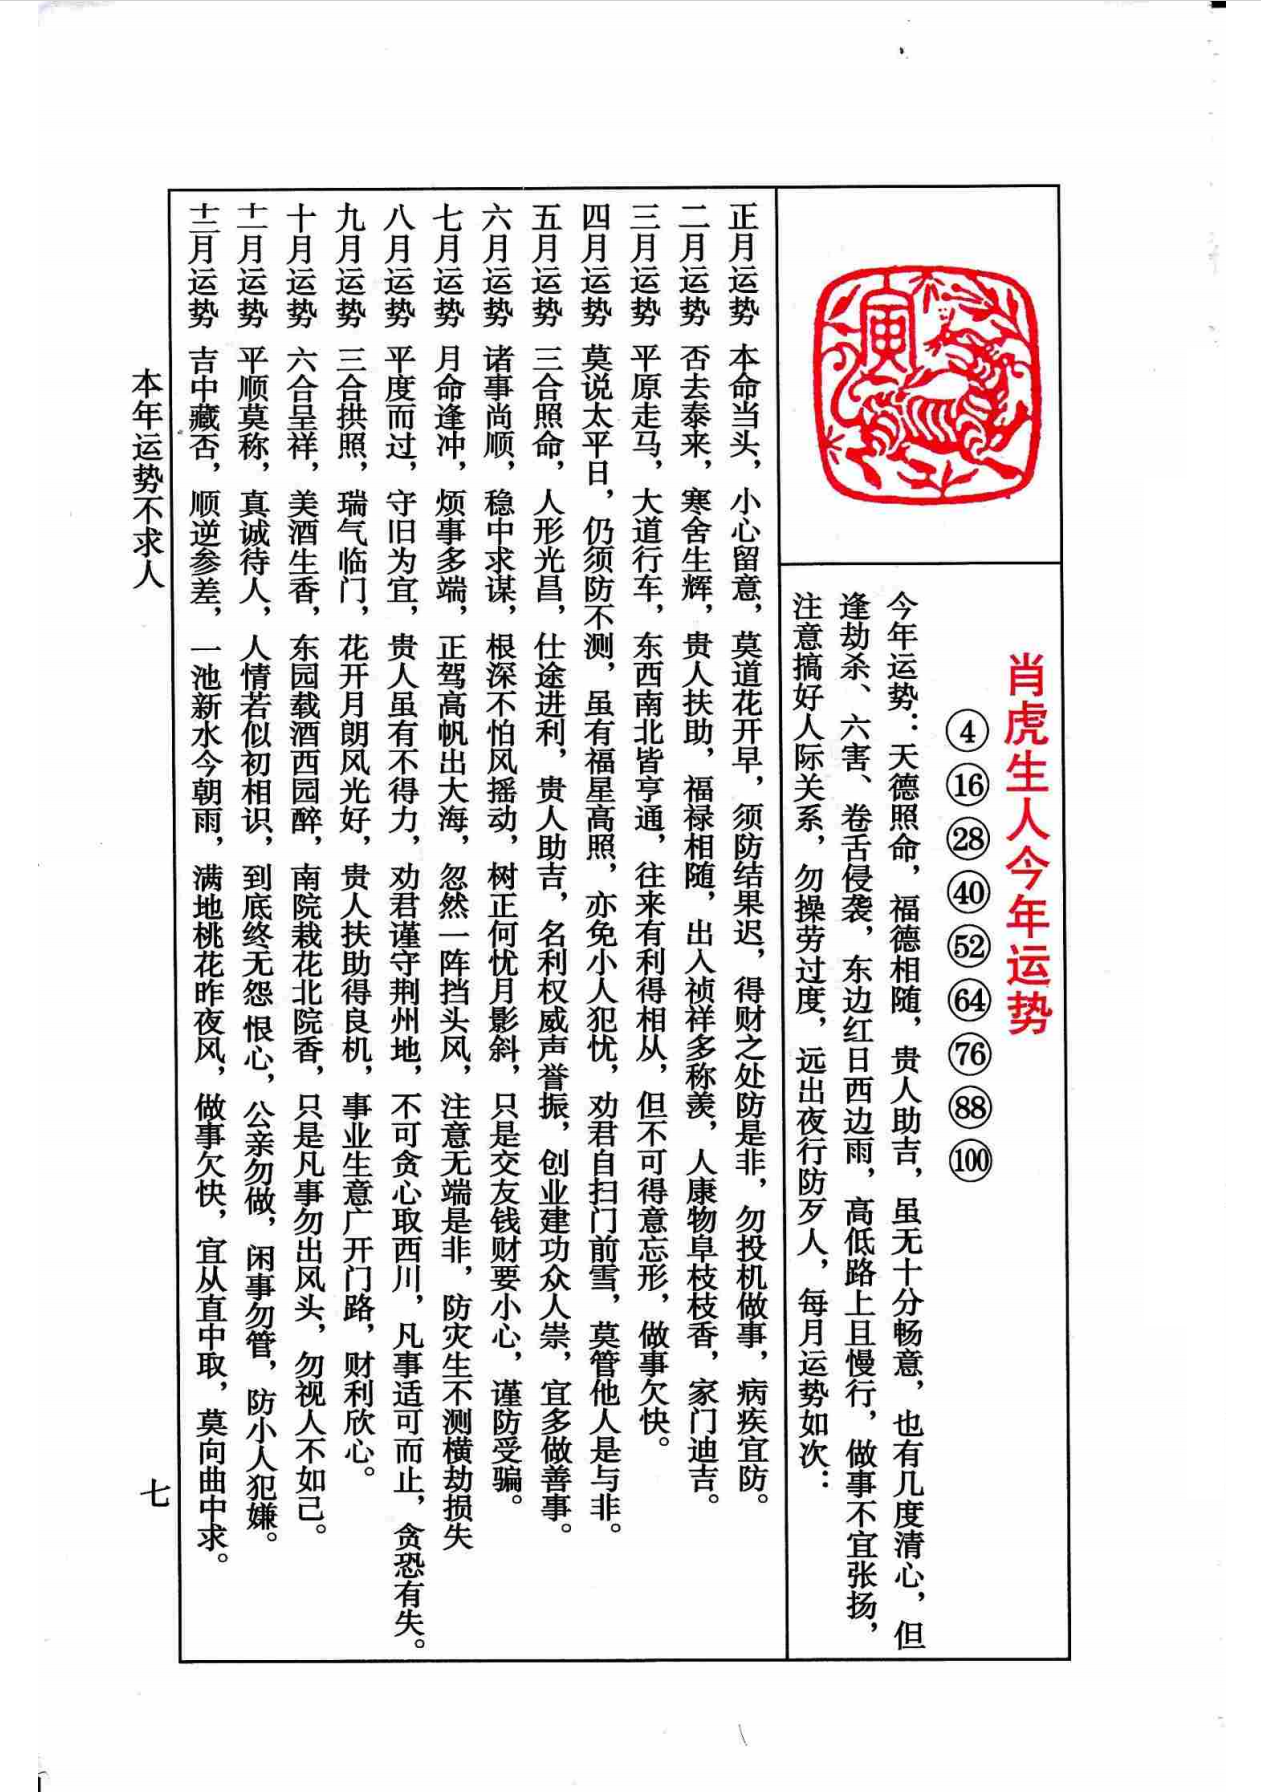 寅
肖虎生人今年运势
④⑯㉘㊵52 64 76 88 100
今年运势：天德照命，福德相随，贵人助吉，虽无十分畅意，也有几度清心，但
逢劫杀、六害、卷舌侵袭，东边红日西边雨，高低路上且慢行，做事不宜张扬，
注意搞好人际关系，勿操劳过度，远出夜行防歹人，每月运势如次：
正月运势 本命当头，小心留意，莫道花开早，须防结果迟，得财之处防是非，勿投机做事，病疾宜防。
二月运势 否去泰来，寒舍生辉，贵人扶助，福禄相随，出入祯祥多称羡，人康物阜枝枝香，家门迪吉。
三月运势 平原走马，大道行车，东西南北皆亨通，往来有利得相从，但不可得意忘形，做事欠快。
四月运势 莫说太平日，仍须防不测，虽有福星高照，亦免小人犯忧，劝君自扫门前雪，莫管他人是与非。
五月运势 三合照命，人形光昌，仕途进利，贵人助吉，名利权威声誉振，创业建功众人崇，宜多做善事。
六月运势 诸事尚顺，稳中求谋，根深不怕风摇动，树正何忧月影斜，只是交友钱财要小心，谨防受骗。
七月运势 月命逢冲，烦事多端，正驾高帆出大海，忽然一阵挡头风，注意无端是非，防灾生不测横劫损失
八月运势 平度而过，守旧为宜，贵人虽有不得力，劝君谨守荆州地，不可贪心取西川，凡事适可而止，贪恐有失。
九月运势 三合拱照，瑞气临门，花开月朗风光好，贵人扶助得良机，事业生意广开门路，财利欣心。
十月运势 六合呈祥，美酒生香，东园载酒西园醉，南院栽花北院香，只是凡事勿出风头，勿视人不如己。
十一月运势 平顺莫称，真诚待人，人情若似初相识，到底终无怨恨心，公亲勿做，闲事勿管，防小人犯嫌。
十二月运势 吉中藏否，顺逆参差，一池新水今朝雨，满地桃花昨夜风，做事欠快，宜从直中取，莫向曲中求。
本年运势不求人
七